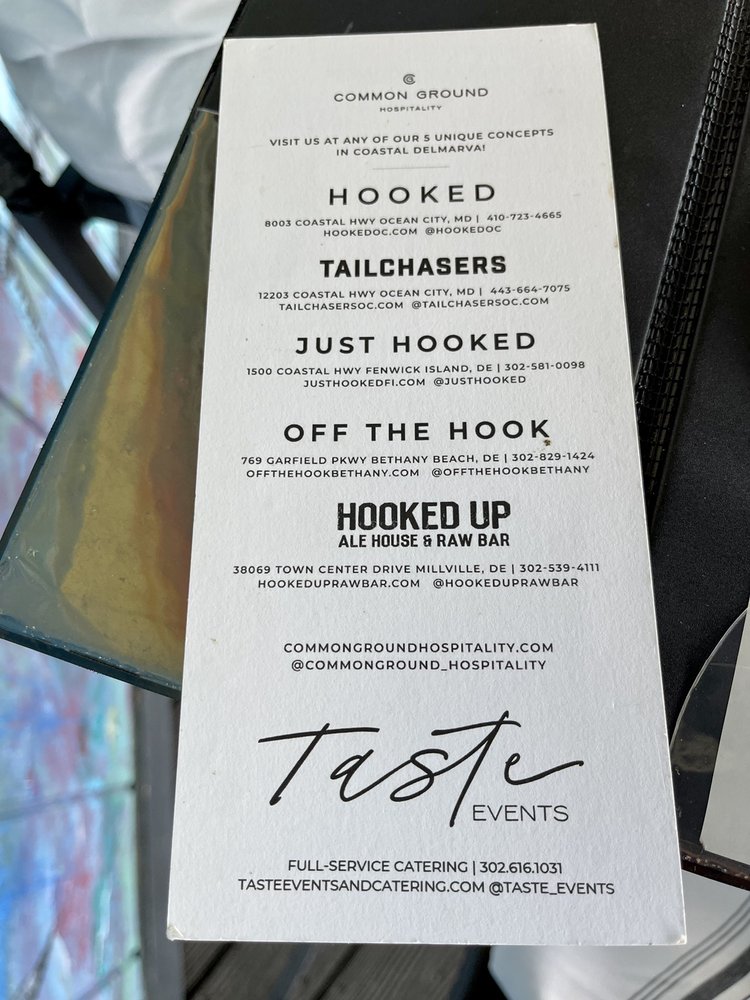 COMMON GROUND
HOSPITALITY
VISIT US AT ANY OF OUR 5 UNIQUE CONCEPTS
IN COASTAL DELMARVA!
HOOKED
8003 COASTAL HWY OCEAN CITY, MD | 410-723-4665
HOOKEDOC.COM @HOOKEDOC
TAILCHASERS
12203 COASTAL HWY OCEAN CITY, MD | 443-664-7075
TAILCHASERSOC.COM @TAILCHASERSOC.COM
JUST HOOKED
1500 COASTAL HWY FENWICK ISLAND, DE | 302-581-0098
JUSTHOOKEDFI.COM @JUSTHOOKED
OFF THE HOOK
769 GARFIELD PKWY BETHANY BEACH, DE | 302-829-1424
OFFTHEHOOKBETHANY.COM @OFFTHEHOOKBETHANY
HOOKED UP
ALE HOUSE & RAW BAR
38069 TOWN CENTER DRIVE MILLVILLE, DE | 302-539-4111
HOOKEDUPRAWBAR.COM @HOOKEDUPRAWBAR
COMMONGROUNDHOSPITALITY.COM
@COMMONGROUND_HOSPITALITY
Taste
EVENTS
FULL-SERVICE CATERING | 302.616.1031
TASTEEVENTSANDCATERING.COM @TASTE_EVENTS